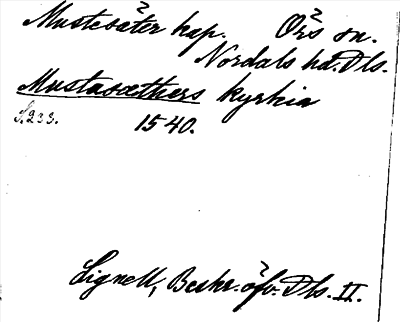 Mustesäter kap. Örs sn.
Nordals hd. Dls.
Mustasæthers kyrkia
S. 233. 1540.
Lignell, Beskr. öfv. Dls. II.